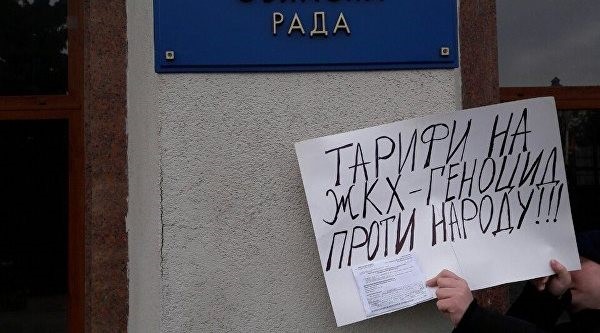 РАДА
ТАРИФИ НА
ЖКХ-ГЕНОЦИД
ПРОТИ НАРОДУ!!!